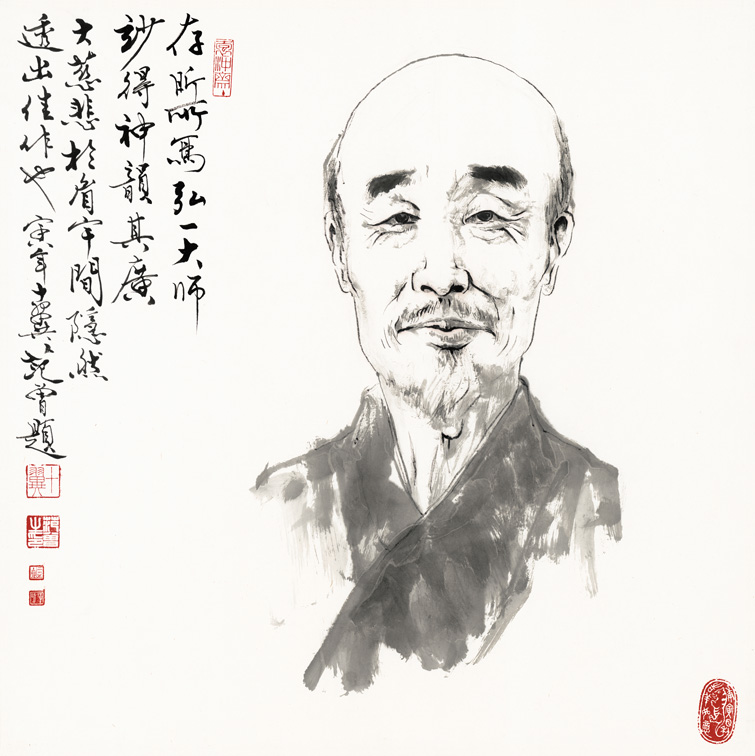 存昕所写弘一大师
妙得神韻其廣
大慈悲於眉宇間隱然
透出佳作也 寅年十翼范曾題
十翼